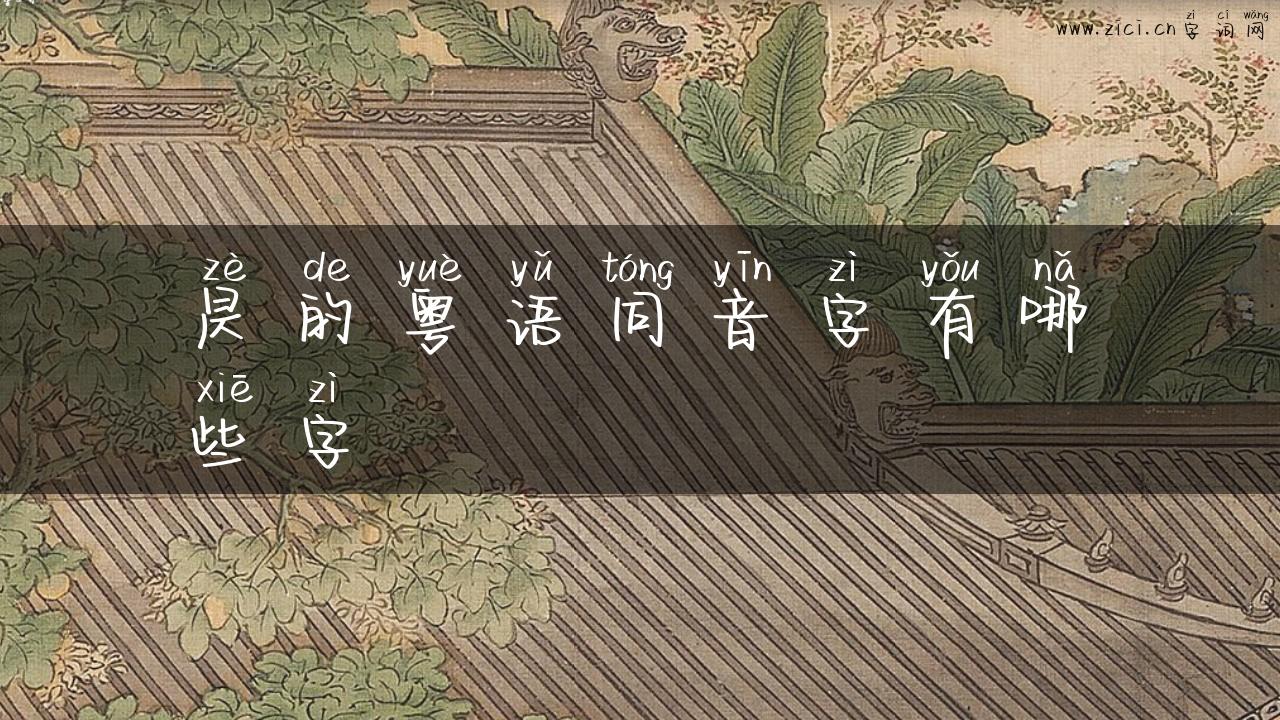 zì cí wǎng
www.zici.cn 字词网
zè de yuè yǔ tóng yīn zì yǒu nǎ
昃的粤语同音字有哪
xiē zì
些字